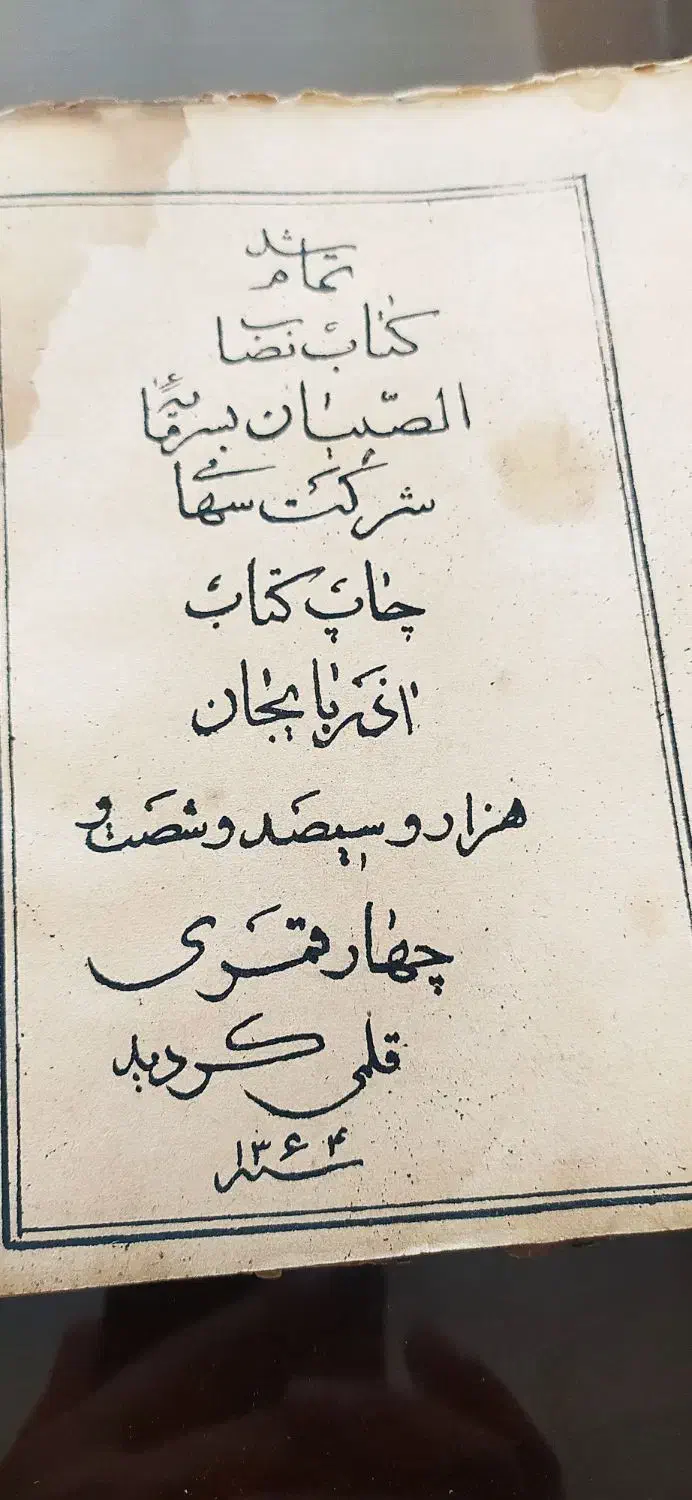 تمام شد
کتاب نصاب
الصّبیان بسرمایهٔ
شرکت سهامی
چاپ کتاب
اذربایجان
هزار و سیصد و شصت و
چهار قمری
قلمی گردید
سنه ۱۳۶۴